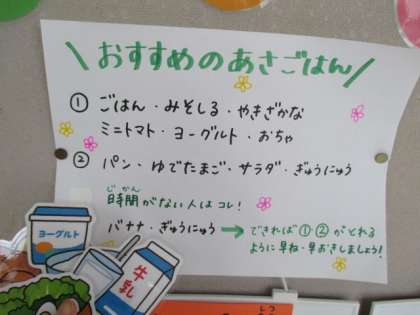 \おすすめのあさごはん/
① ごはん・みそしる・やきざかな
ミニトマト・ヨーグルト・おちゃ
② パン・ゆでたまご・サラダ・ぎゅうにゅう
じかん
時間がない人はコレ!
バナナ・ぎゅうにゅう → できれば①②がとれる
ように早ね・早おきしましょう!
ヨーグルト
牛乳